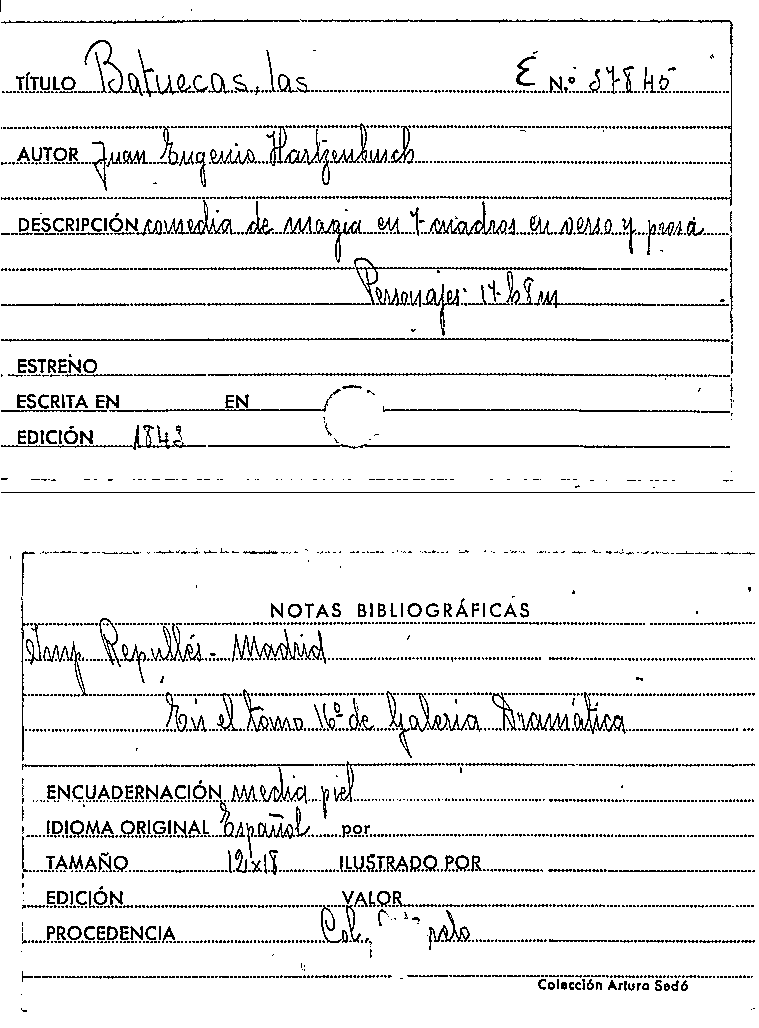 TÍTULO Batuecas, las E N.º 37845
AUTOR Juan Eugenio Hartzenbusch
DESCRIPCIÓN comedia de magia en 7 cuadros en verso y prosa
Personajes: 17 h 8 m
ESTRENO
ESCRITA EN EN
EDICIÓN 1843
NOTAS BIBLIOGRÁFICAS
Imp Repullés - Madrid
En el tomo 16º de Galeria Dramática
ENCUADERNACIÓN media piel
IDIOMA ORIGINAL Español por
TAMAÑO 12x18 ILUSTRADO POR
EDICIÓN VALOR
PROCEDENCIA Col.
Colección Arturo Sedó